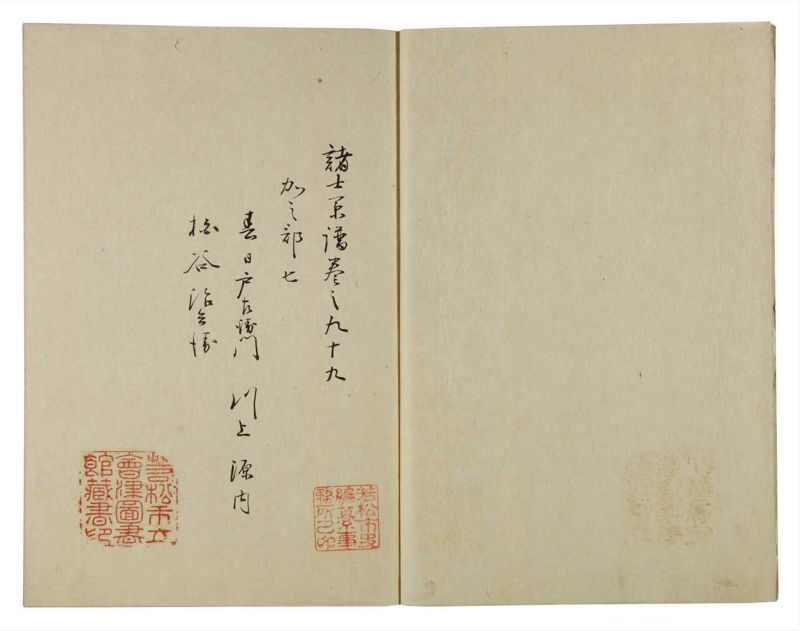 諸士系譜巻之九十九
加之部七
春日戸左衛門　川上源内
柏谷治兵衛
若松市史
編纂事
務所之印
若松市立
會津圖書
館藏書印